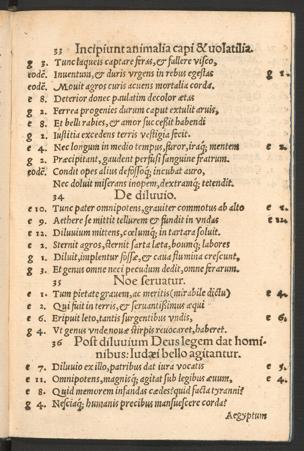 33 Incipiunt animalia capi & uolatilia.
g 3. Tunc laqueis captare feras, & fallere visco,
eodē. Inuentum, & duris vrgens in rebus egestas g 1.
eodē. Mouit agros curis acuens mortalia corda.
e 8. Deterior donec paulatim decolor ætas
g 2. Ferrea progenies durum caput extulit aruis,
e 8. Et belli rabies, & amor successit habendi
g 2. Iustitia excedens terris vestigia fecit.
e 4. Nec longum in medio tempus, furor, iraq; mentem e 2.
g 2. Præcipitant, gaudent perfusi sanguine fratrum.
eodē. Condit opes alius defossoq; incubat auro,
Nec doluit miserans inopem, dextramq; tetendit.
34
De diluuio.
e 10. Tunc pater omnipotens, grauiter commotus ab alto e 1.
e 9. Aethere se mittit tellurem & fundit in vndas e 12.
e 12. Diluuium mittens, cœlumq; in tartara soluit.
e 2. Sternit agros, sternit sata læta, boumq; labores
g 1. Diluit, implentur fossæ, & caua flumina crescunt,
g 3. Et genus omne neci pecudum dedit, omne ferarum.
35
Noe seruatur.
e 1. Tum pietate grauem, ac meritis (mirabile dictu) e 4.
e 2. Qui fuit in terris, & seruantissimus æqui
e 6. Eripuit leto, tantis surgentibus vndis, e 6.
g 4. Vt genus vnde nouæ stirpis reuocaret, haberet.
36 Post diluuium Deus legem dat homi-
nibus: Iudæi bello agitantur.
e 7. Diluuio ex illo, patribus dat iura vocatis e 5.
e 12. Omnipotens, magnisq; agitat sub legibus æuum, e 4.
e 8. Quid memorem infandas cædes? quid facta tyranni?
g 4. Nesciaq; humanis precibus mansuescere corda?
Aegyptum